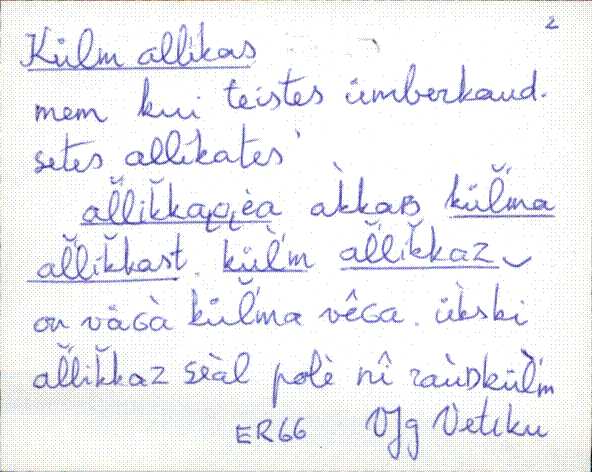 2
Külm allikas
mem kui teistes ümberkaud-
setes allikates
ал̆lik̆kaqqèa àkkaʙ kül̆'ma
al̆lik̆kast. kül'm al̆lik̆kaz
on vägà kül̆'ma vêga. ükski
al̆lik̆kaz seàl polè nî raùᴅkül'm
ER66 VJg Vetiku